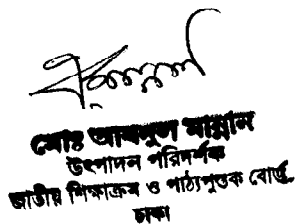 মোঃ আবদুল মান্নান
উৎপাদন পরিদর্শক
জাতীয় শিক্ষাক্রম ও পাঠ্যপুস্তক বোর্ড,
ঢাকা